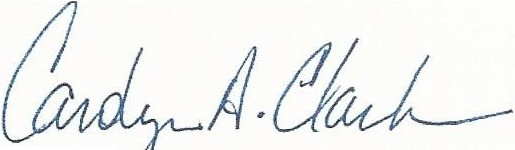 Carolyn A. Clark